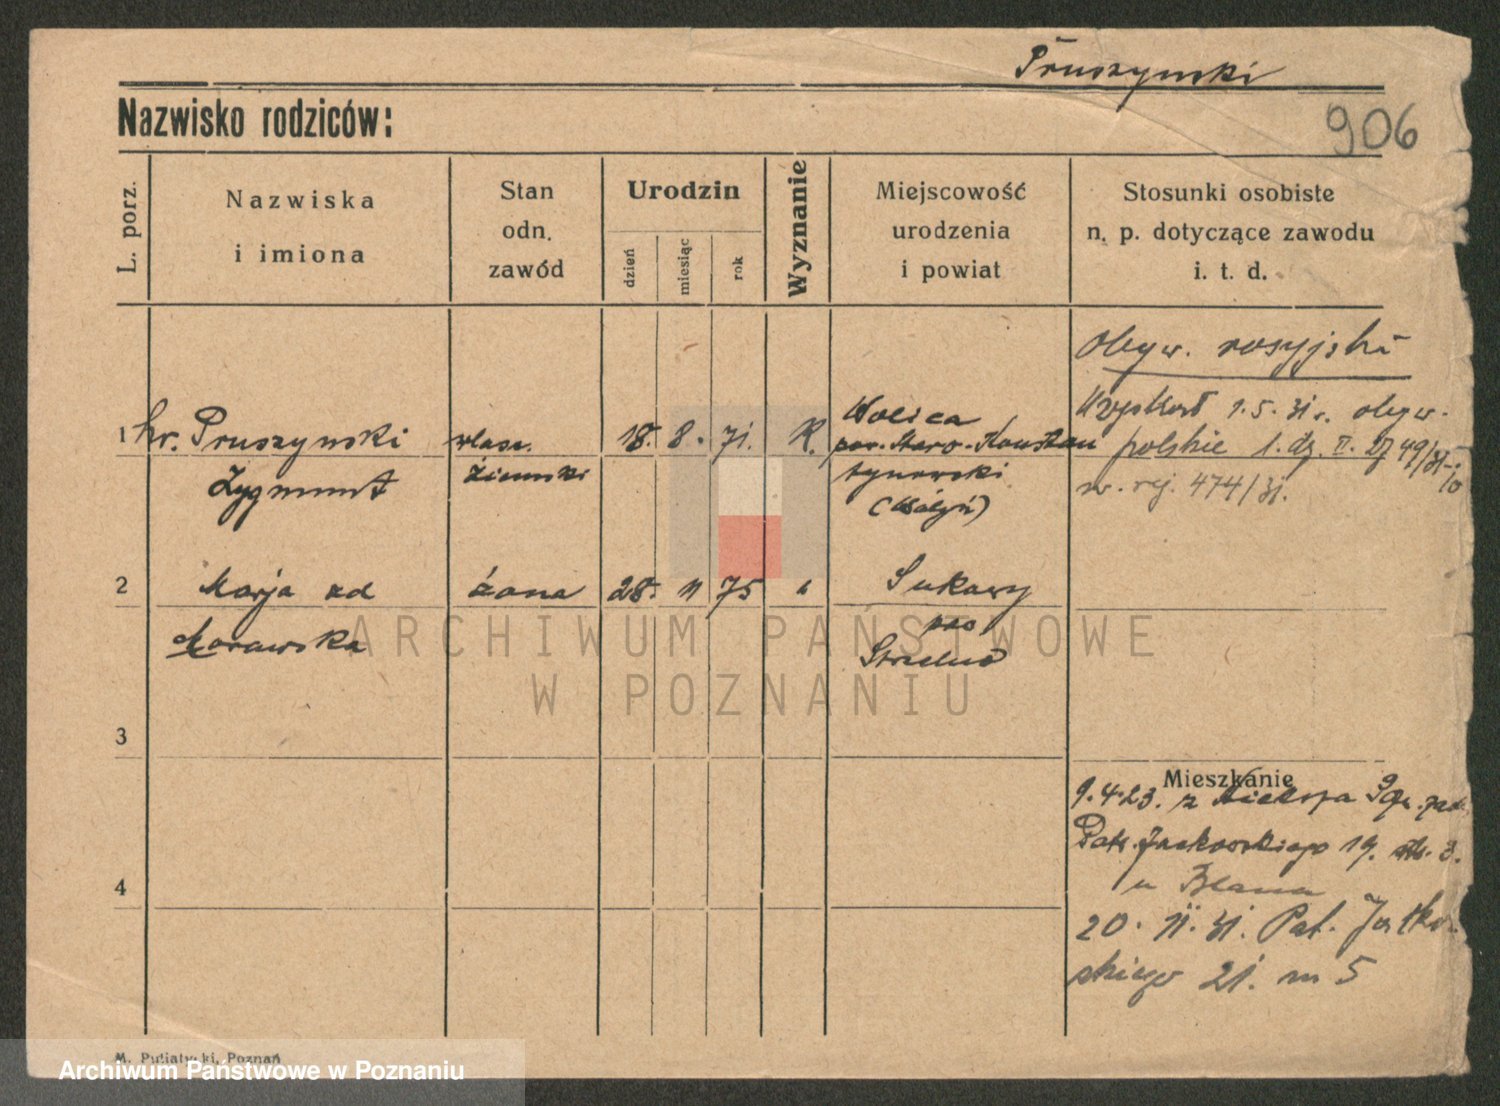 Pruszynski
Nazwisko rodziców:
906
L. porz.
Nazwiska
i imiona
Stan
odn.
zawód
Urodzin
dzień
miesiąc
rok
Wyznanie
Miejscowość
urodzenia
i powiat
Stosunki osobiste
n. p. dotyczące zawodu
i. t. d.
Obyw. rosyjski
1 hr. Pruszynski własc. 18. 8. 71. K. Wolica
Zygmunt ziemski pow. Staro-Konstan
tynowski
(Wołyń)
Uzyskał 1.5.31 r. obyw.
polskie l. dz. II. 49/31
nr. rej. 474/31.
2 Marja zd żona 28. 11 75 " Sukowy
Morawska pow
Strzelno
3
Mieszkanie
9.4.23. z
Patr. Jackowskiego 19. 3.
u
4
20. II. 31. Pat. Jackow
skiego 21. m 5
M. Putiatycki, Poznań
ARCHIWUM PAŃSTWOWE
W POZNANIU
Archiwum Państwowe w Poznaniu